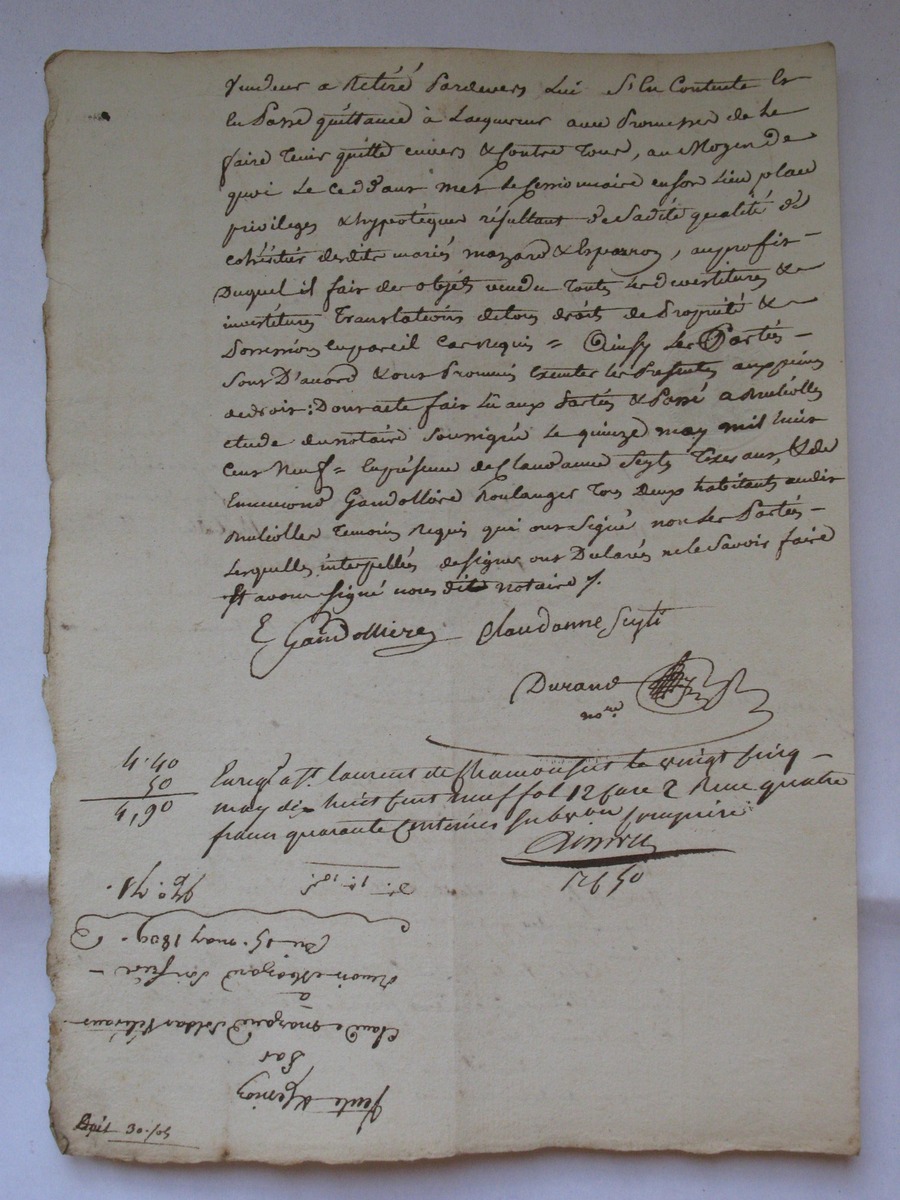 Vendeur a Retiré Pardevers Lui S'En Contente Et
En Passe quittance à Lacquereur avec Promesse de Le
faire Tenir quitte envers & Contre Tous, au Moyen de
quoi Le Ceddant met Le Cessionnaire en son Lieu place
privileges & hypotéques résultant de Sadite qualité de
cohéritier desdits mariés mazard & Esparron, au profit
Duquel il fait des objets vendu Touts Les devestitures &
investitures Translations de tous droits de Propriété &
Possession en pareil Cas Requis = Ainsy Les Partés
Sont D'acord & ont Promis Executer les Presentes aux peines
de droit: Dont acte fait Lû aux Partés & Passé a
etude du notaire soussigné Le quinze may mil huit
Cent Neuf = En présence de Claudanne Seyti Tixerant, & de
Ennemond Gandolliere Boulanger Tous Deux habitants audit
Temoins Requis qui ont Signé non Les Partés
Lesquelles interpellées de signer ont Déclarés ne le Savoir faire
Et avons signé nous dit notaire /.
E Gandolliere Claudanne Seyti
Durand
no.re
4·40
50
4,90
Enreg.é a St. laurent de Chamousset le vingt Cinq
may dix huit Cent neuf fol 12 Case 2 Reçu quatre
francs quarante Centimes Subvon Comprise
526 50
Vente & Cession
Par
Claude mazard Soldat Véteran
à
mazard Son frère
Du 15. may 1809.
Dépt 30·/05